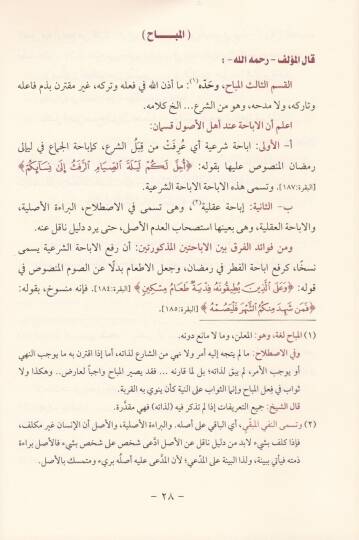 ( المباح )
قال المؤلف - رحمه الله - :
القسم الثالث المباح، وحَدّه(١): ما أذن الله في فعله وتركه، غير مقترن بذم فاعله
وتاركه، ولا مدحه، وهو من الشرع... الخ كلامه.
اعلم أن الاباحة عند أهل الأصول قسمان:
أ- الأولى: اباحة شرعية أي عُرِفَتْ من قِبَلُ الشرع، كإباحة الجماع في ليالي
رمضان المنصوص عليها بقوله: ﴿أُحِلَّ لَكُمْ لَيْلَةَ الصِّيَامِ الرَّفَثُ إِلَى نِسَائِكُمْ﴾
[البقرة: ١٨٧]. وتسمى هذه الاباحة الاباحة الشرعية.
ب- الثانية: إباحة عقلية(٢)، وهى تسمى في الاصطلاح، البراءة الأصلية،
والاباحة العقلية، وهى بعينها استصحاب العدم الأصلى، حتى يرد دليل ناقل عنه.
ومن فوائد الفرق بين الاباحتين المذكورتين: أن رفع الاباحة الشرعية يسمى
نسخًا، كرفع اباحة الفطر في رمضان، وجعل الاطعام بدلًا عن الصوم المنصوص في
قوله: ﴿وَعَلَى الَّذِينَ يُطِيقُونَهُ فِدْيَةٌ طَعَامُ مِسْكِينٍ﴾ [البقرة: ١٨٤]. فإنه منسوخ، بقوله:
﴿فَمَن شَهِدَ مِنكُمُ الشَّهْرَ فَلْيَصُمْهُ﴾ [البقرة: ١٨٥].
(١) المباح لغة، هو: المعلن، وما لا مانع دونه.
وفي الاصطلاح: ما لم يتجه إليه أمر ولا نهي من الشارع لذاته؛ أما إذا اقترن به ما يوجب النهي
أو يوجب الأمر، لم يبق لذاته؛ بل لما قارنه ... فقد يصير المباح واجباً لعارض.. وهكذا ولا
ثواب في فِعل المباح وإنما الثواب على النية كأن ينوي به القربة.
قال الشيخ: جميع التعريفات إذا لم تذكر فيه (لذاته) فهي مقدَّرة.
(٢) وتسمى النفي المبقّي، أي الباقي على أصله. والبراءة الأصلية، والأصل أن الإنسان غير مكلف،
فإذا كلف بشيء لابد من دليل ناقل عن الأصل ادَّعى شخص على شخص بشيء فالأصل براءة
ذمته فيأتي ببينة، ولذا البينة على المدَّعي؛ لأن المدَّعى عليه أصلُه بريء ومتمسك بالأصل.
- ٢٨ -